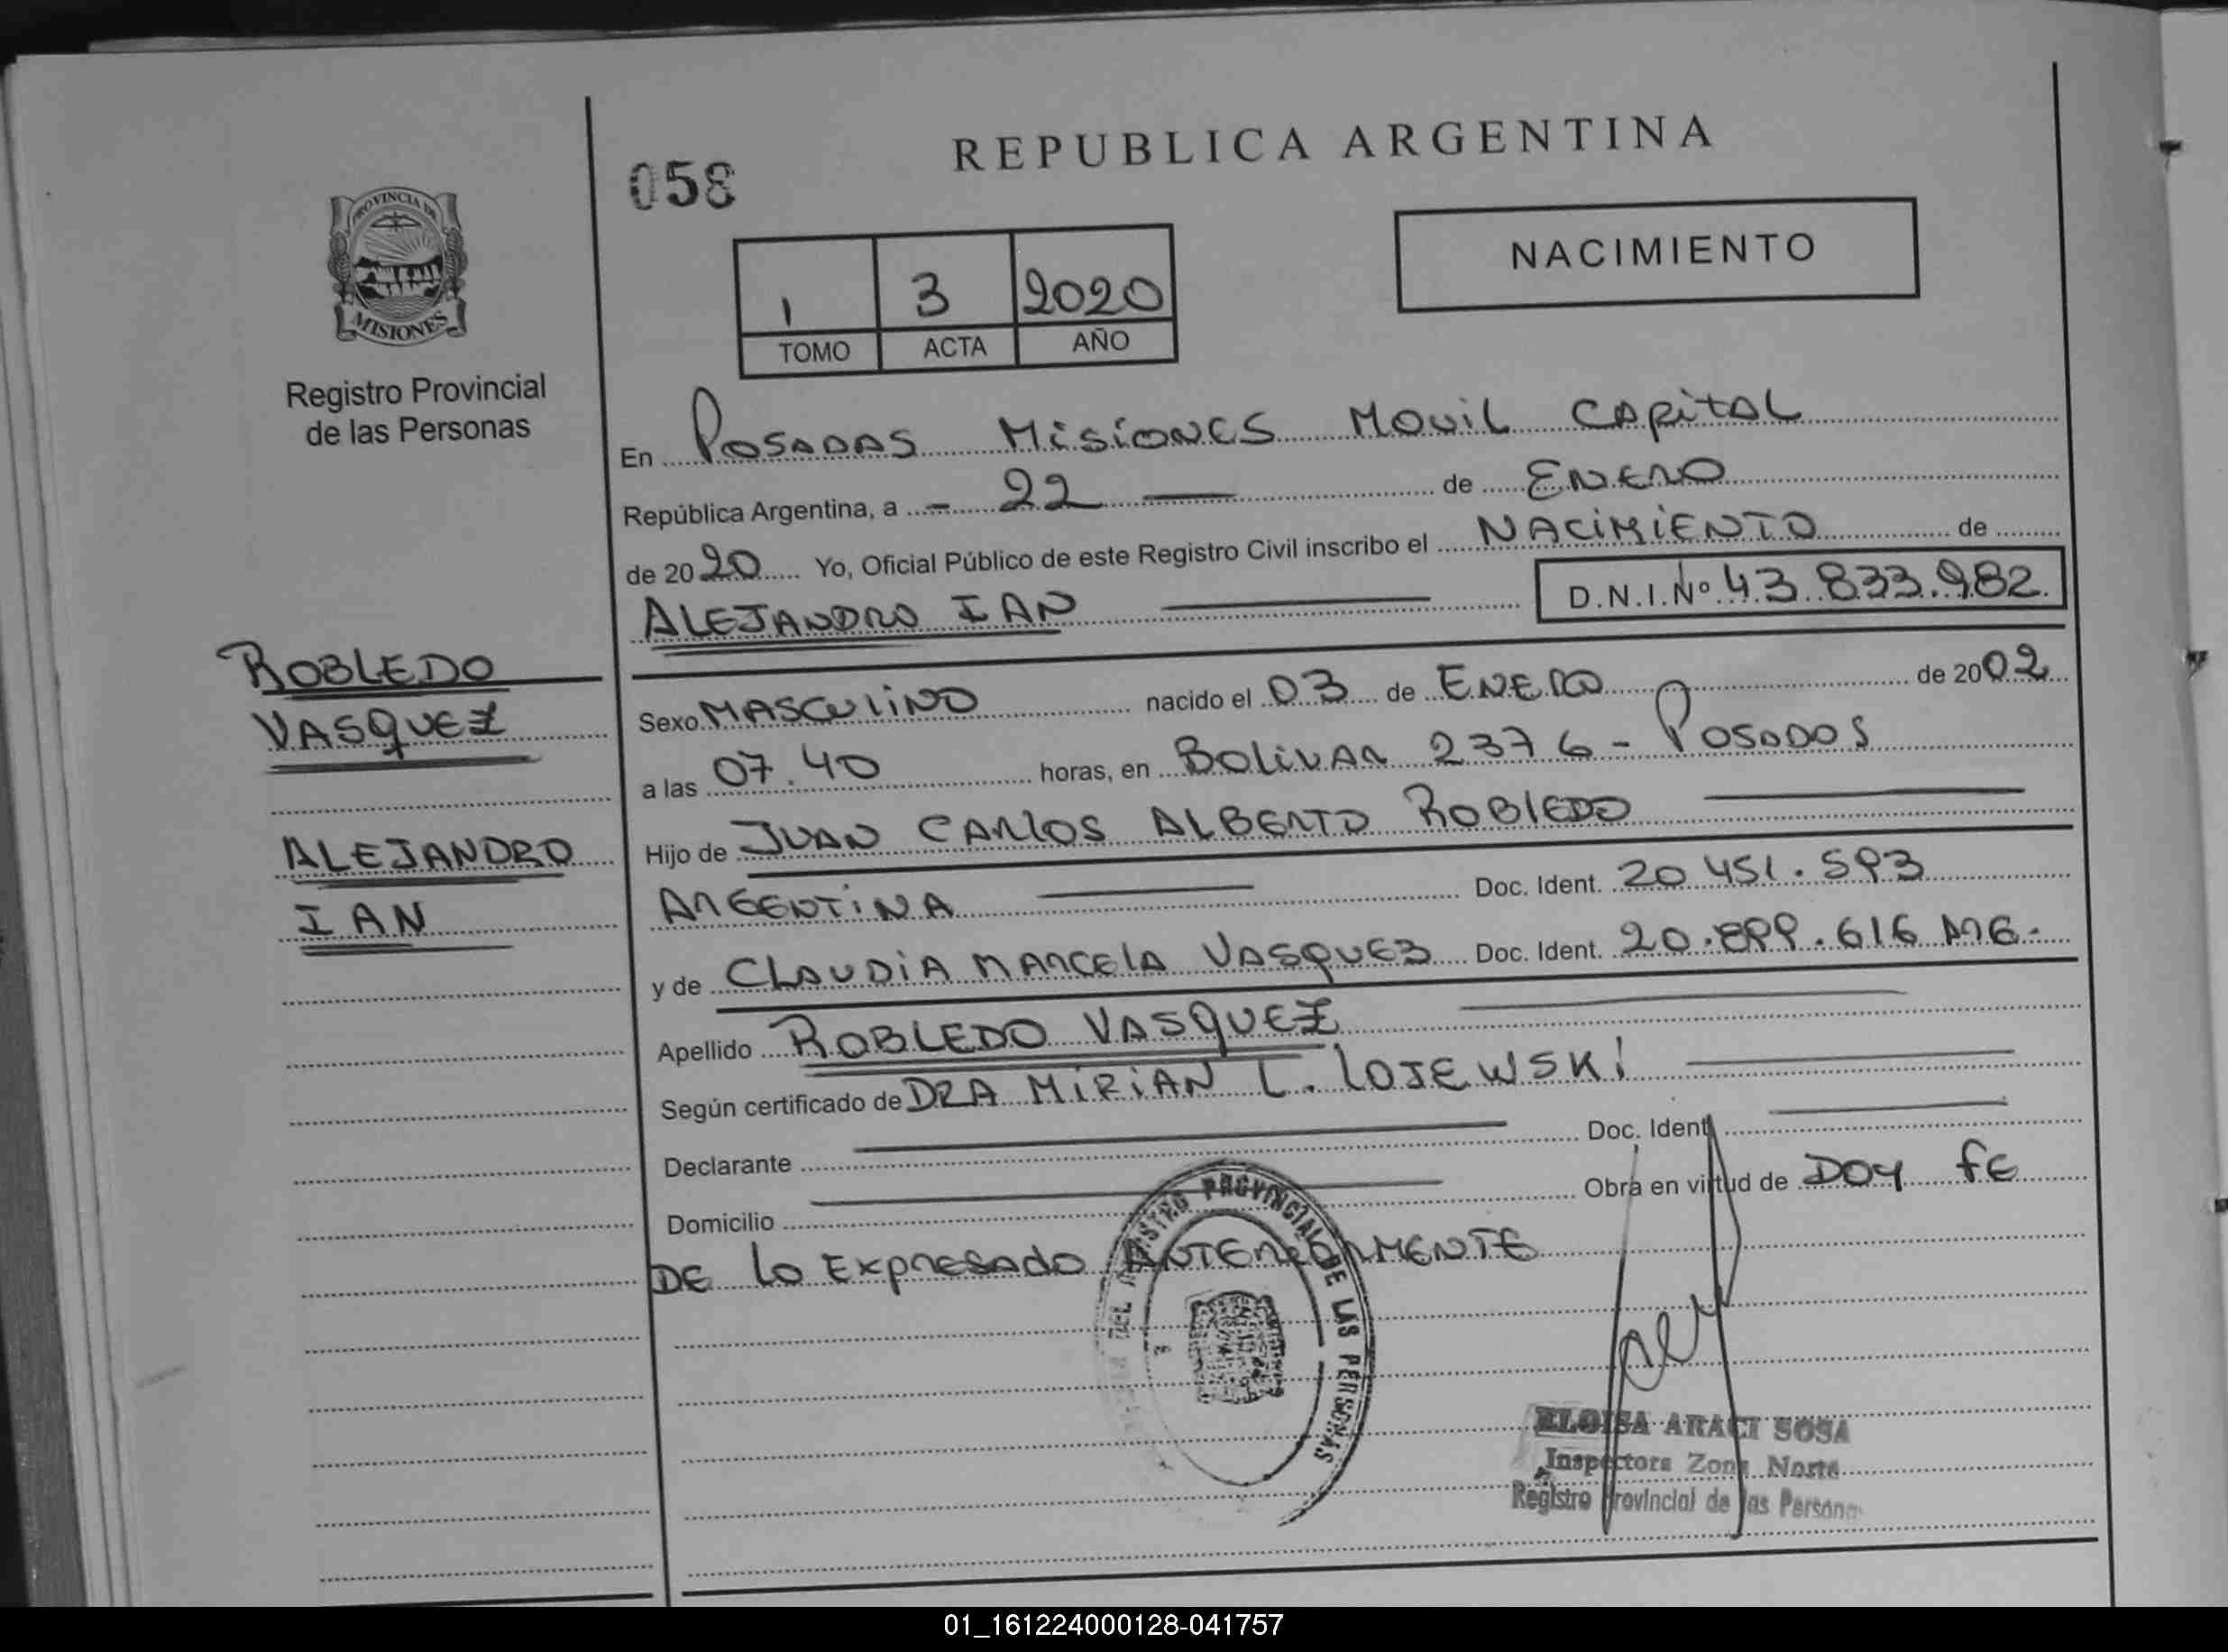 REPUBLICA ARGENTINA
058
PROVINCIA DE
MISIONES
Registro Provincial
de las Personas
1 3 2020
TOMO ACTA AÑO
NACIMIENTO
En POSADAS MISIONES MOVIL CAPITAL
República Argentina, a - 22 — de ENERO
de 2020 Yo, Oficial Público de este Registro Civil inscribo el NACIMIENTO de
ALEJANDRO IAN D.N.I.Nº 43.833.982
ROBLEDO
VASQUEZ
ALEJANDRO
IAN
Sexo MASCULINO nacido el 03 de ENERO de 2002
a las 07.40 horas, en BOLIVAR 2376 - POSADAS
Hijo de JUAN CARLOS ALBERTO ROBLEDO
ARGENTINA Doc. Ident. 20 451.593
y de CLAUDIA MARCELA VASQUEZ Doc. Ident. 20.899.616 ARG.
Apellido ROBLEDO VASQUEZ
Según certificado de DRA MIRIAN L. LOJEWSKI
Declarante Doc. Ident.
Domicilio Obra en virtud de DOY FE
DE LO EXPRESADO ANTERIORMENTE
DEL REGISTRO PROVINCIAL DE LAS PERSONAS
ELOISA ARACI SOSA
Inspectora Zona Norte
Registro Provincial de las Persona
01_161224000128-041757